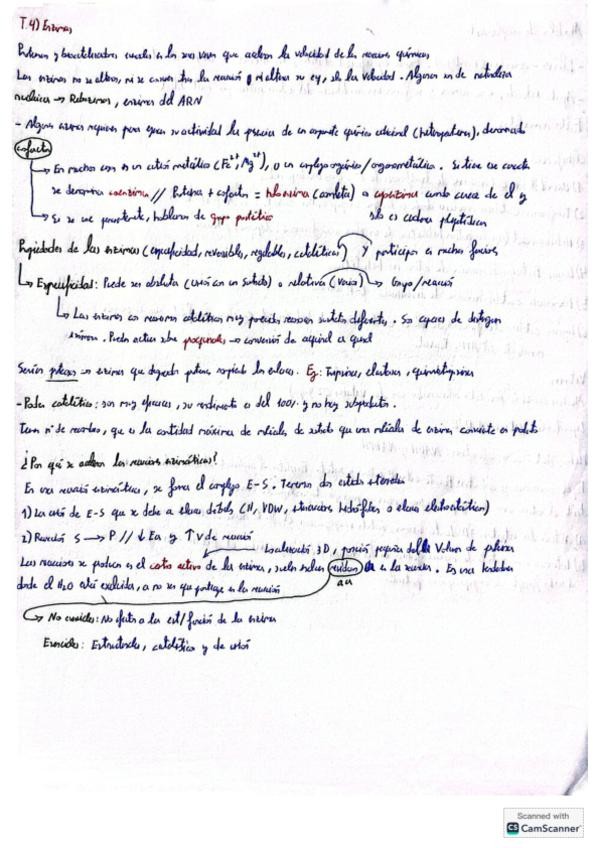 T.4) Enzimas
Proteínas y biocatalizadores en los seres vivos que aceleran la velocidad de las reacciones químicas
Las enzimas no se alteran, ni se consumen tras la reacción ni altera su eq, sólo la velocidad. Algunas son de naturaleza
nucleica → Ribozimas, enzimas del ARN
- Algunas enzimas requieren para ejercer su actividad la presencia de un componente químico adicional (heteroproteínas), denominado
cofactor
→ En muchos casos es un catión metálico (Fe²⁺, Mg²⁺), o un complejo orgánico / organometálico. Si se
se denomina coenzima // Proteína + cofactor = holoenzima (completa) o apoenzima cuando carece de él y
→ Si se une permanentemente, hablamos de grupo prostético
sólo es cadena peptídica
Propiedades de las enzimas (especificidad, reversibles, regulables, catalíticas) y participan en muchas funciones
→ Especificidad: Puede ser absoluta (unión con un sustrato) o relativa (varios) → Grupo / reacción
→ Las enzimas con reacciones catalíticas muy parecidas reconocen sustratos diferentes. Son capaces de distinguir
isómeros. Pueden actuar sobre proquirales → conversión de aquiral a quiral
Serina proteasas → enzimas que degradan proteínas rompiendo los enlaces. Ej: Tripsina, elastasa, quimotripsina
- Poder catalítico: son muy eficaces, su rendimiento es del 100% y no hay subproductos.
Tienen nº de recambio, que es la cantidad máxima de moléculas de sustrato que una molécula de enzima convierte en producto
¿Por qué se aceleran las reacciones enzimáticas?
En una reacción enzimática, se forma el complejo E-S. Tenemos dos estados
1) La unión de E-S que se debe a enlaces débiles (H, VDW, interacciones hidrófobas o enlaces electrostáticos)
2) Reacción S → P // ↓ Ea y ↑ V de reacción
Localización 3D, porción pequeña del Volumen de proteína
Las reacciones se producen en el centro activo de las enzimas, suelen incluir residuos en la reacción. Es una hendidura
aa
donde el H₂O está excluida, a no ser que participe en la reacción
→ No esenciales: No afectan a la est/función de la enzima
Esenciales: Estructurales, catalíticos y de unión
Scanned with
CS CamScanner